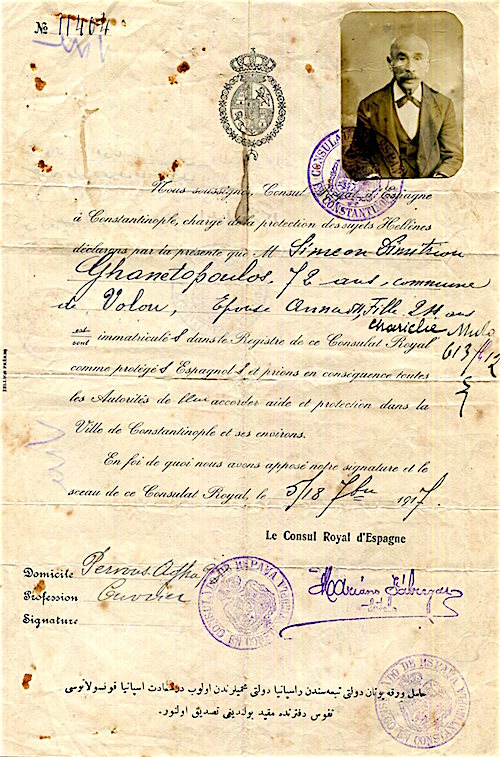 № 11464
Nous soussigné, Consul Espagne
à Constantinople, chargé de la protection des sujets Hellènes
déclarons par la présente que M Simeon Dimitriou
Ghametopoulos, 72 ans, commune
de Volou, Epouse Anna, Fille 24 ans
Chariclée
est
sont immatriculés dans le Registre de ce Consulat Royal
613/12
comme protégés Espagnols et prions en conséquence toutes
les Autorités de accorder aide et protection dans la
Ville de Constantinople et ses environs.
En foi de quoi nous avons apposé notre signature et le
sceau de ce Consulat Royal, le 5/18 7bre 1917.
Le Consul Royal d'Espagne
Domicile
Profession Ouvrier
Signature
CONSULADO DE ESPAÑA
EN CONSTANTINOPLA
حامل ورقه یونان دولتی تبعه‌سندن و اسپانیا دولتی محمیلرندن اولوب درسعادت اسپانیا قونسولاتوسی
نفوس دفترنده مقید بولندیغی تصدیق اولنور.